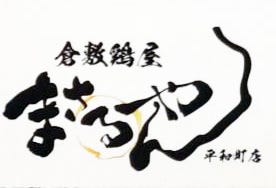 倉敷鶏屋
まさるやん
平和町店